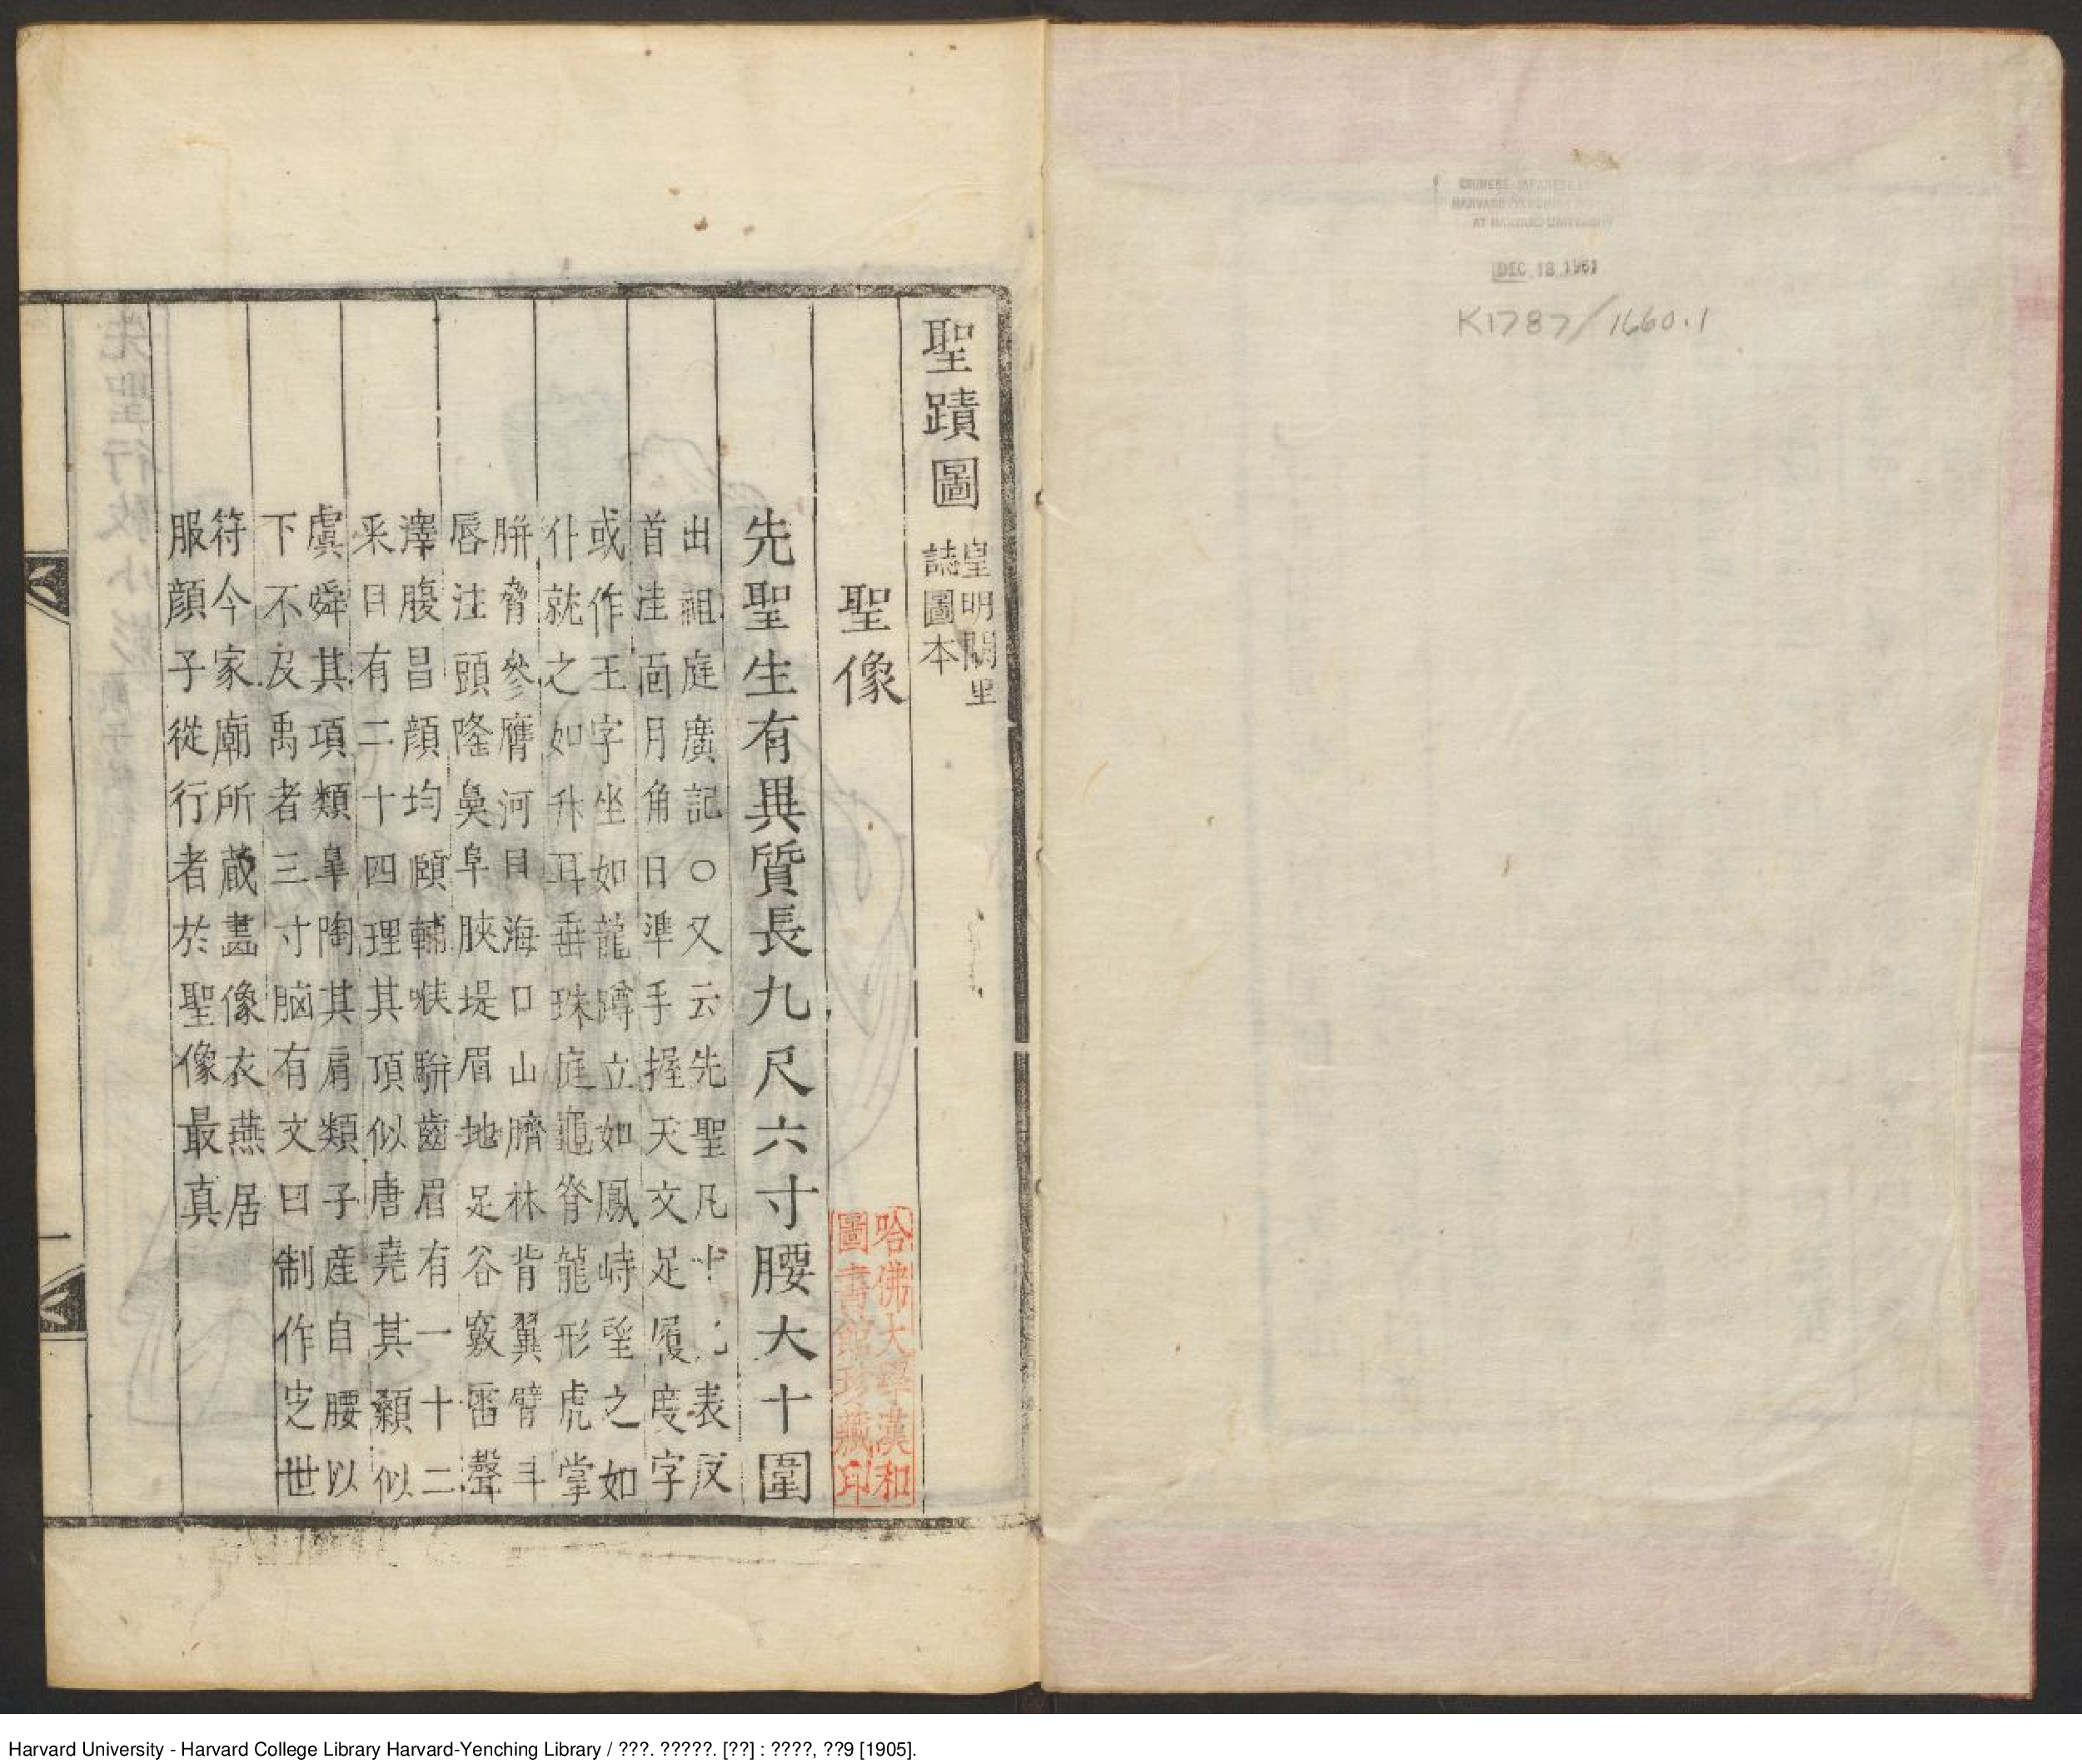 CHINESE-JAPANESE
HARVARD-YENCHING
AT HARVARD UNIVERSITY
DEC 18 1961
K1787/1660.1
聖蹟圖
皇明闕里
誌圖本
聖像
先聖生有異質長九尺六寸腰大十圍
出祖庭廣記○又云先聖凡十九表反
首洼面月角日準手握天文足履度字
或作王字坐如龍蹲立如鳳峙望之如
仆就之如升耳垂珠庭龜脊龍形虎掌
胼脅參膺河目海口山臍林背翼臂斗
唇注頭隆鼻阜脥堤眉地足谷竅雷聲
澤腹昌顔均頤輔喉駢齒眉有一十二
采目有二十四理其頂似唐堯其顙似
虞舜其項類臯陶其肩類子産自腰以
下不及禹者三寸腦有文曰制作定世
符今家廟所蔵畫像衣燕居
服顔子從行者於聖像最真
哈佛大學漢和
圖書館珍藏印
一
Harvard University - Harvard College Library Harvard-Yenching Library / ???. ?????. [??] : ????, ??9 [1905].